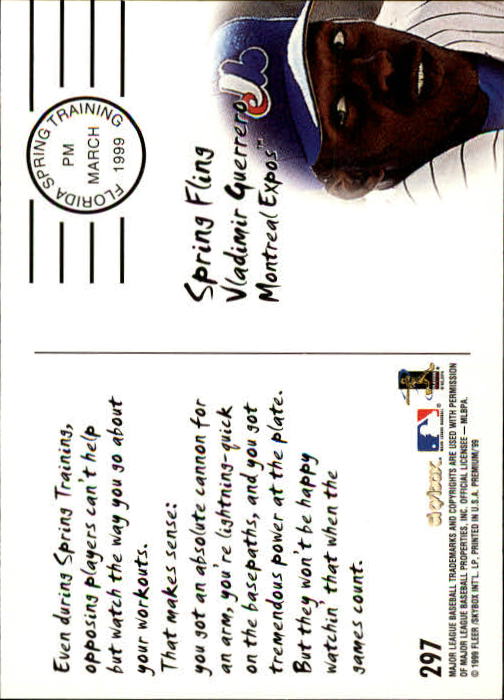 FLORIDA SPRING TRAINING
PM
MARCH
1999
Spring Fling
Vladimir Guerrero
Montreal Expos™
Even during Spring Training,
opposing players can't help
but watch the way you go about
your workouts.
That makes sense:
you got an absolute cannon for
an arm, you're lightning-quick
on the basepaths, and you got
tremendous power at the plate.
But they won't be happy
watchin' that when the
games count.
297
skybox
MAJOR LEAGUE BASEBALL TRADEMARKS AND COPYRIGHTS ARE USED WITH PERMISSION
OF MAJOR LEAGUE BASEBALL PROPERTIES, INC. OFFICIAL LICENSEE — MLBPA.
© 1999 FLEER /SKYBOX INT'L. LP. PRINTED IN U.S.A. PREMIUM/'99